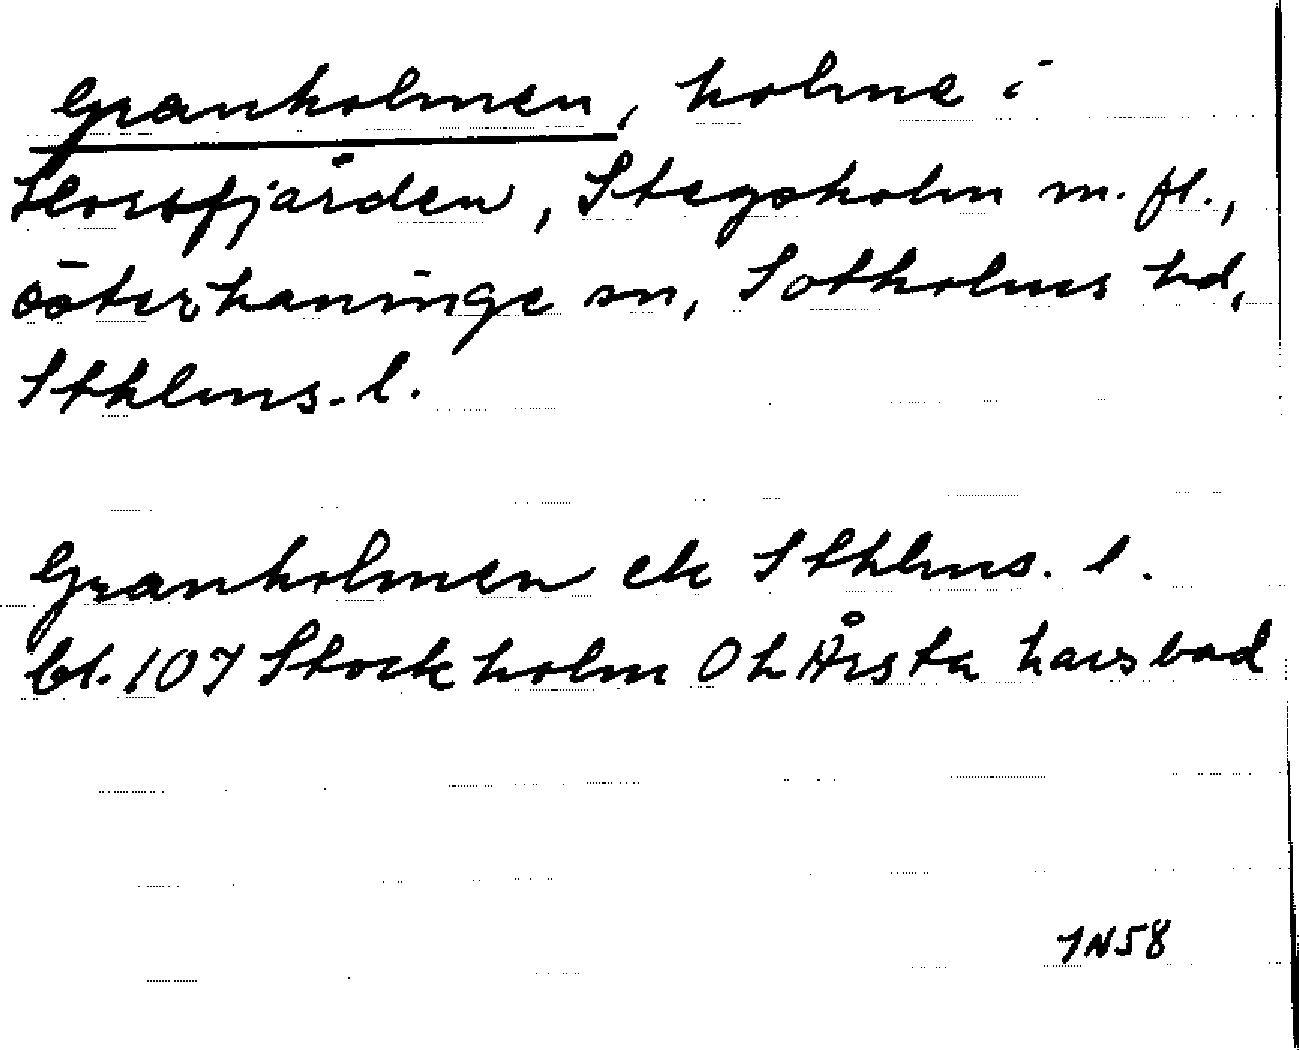 Granholmen, holme i
Horsfjärden, Stegsholm m. fl.,
Österhaninge sn, Sotholms hd,
Sthlms. l.
Granholmen ek Sthlms. l.
bl. 107 Stockholm Oh Årsta havsbad
JN58